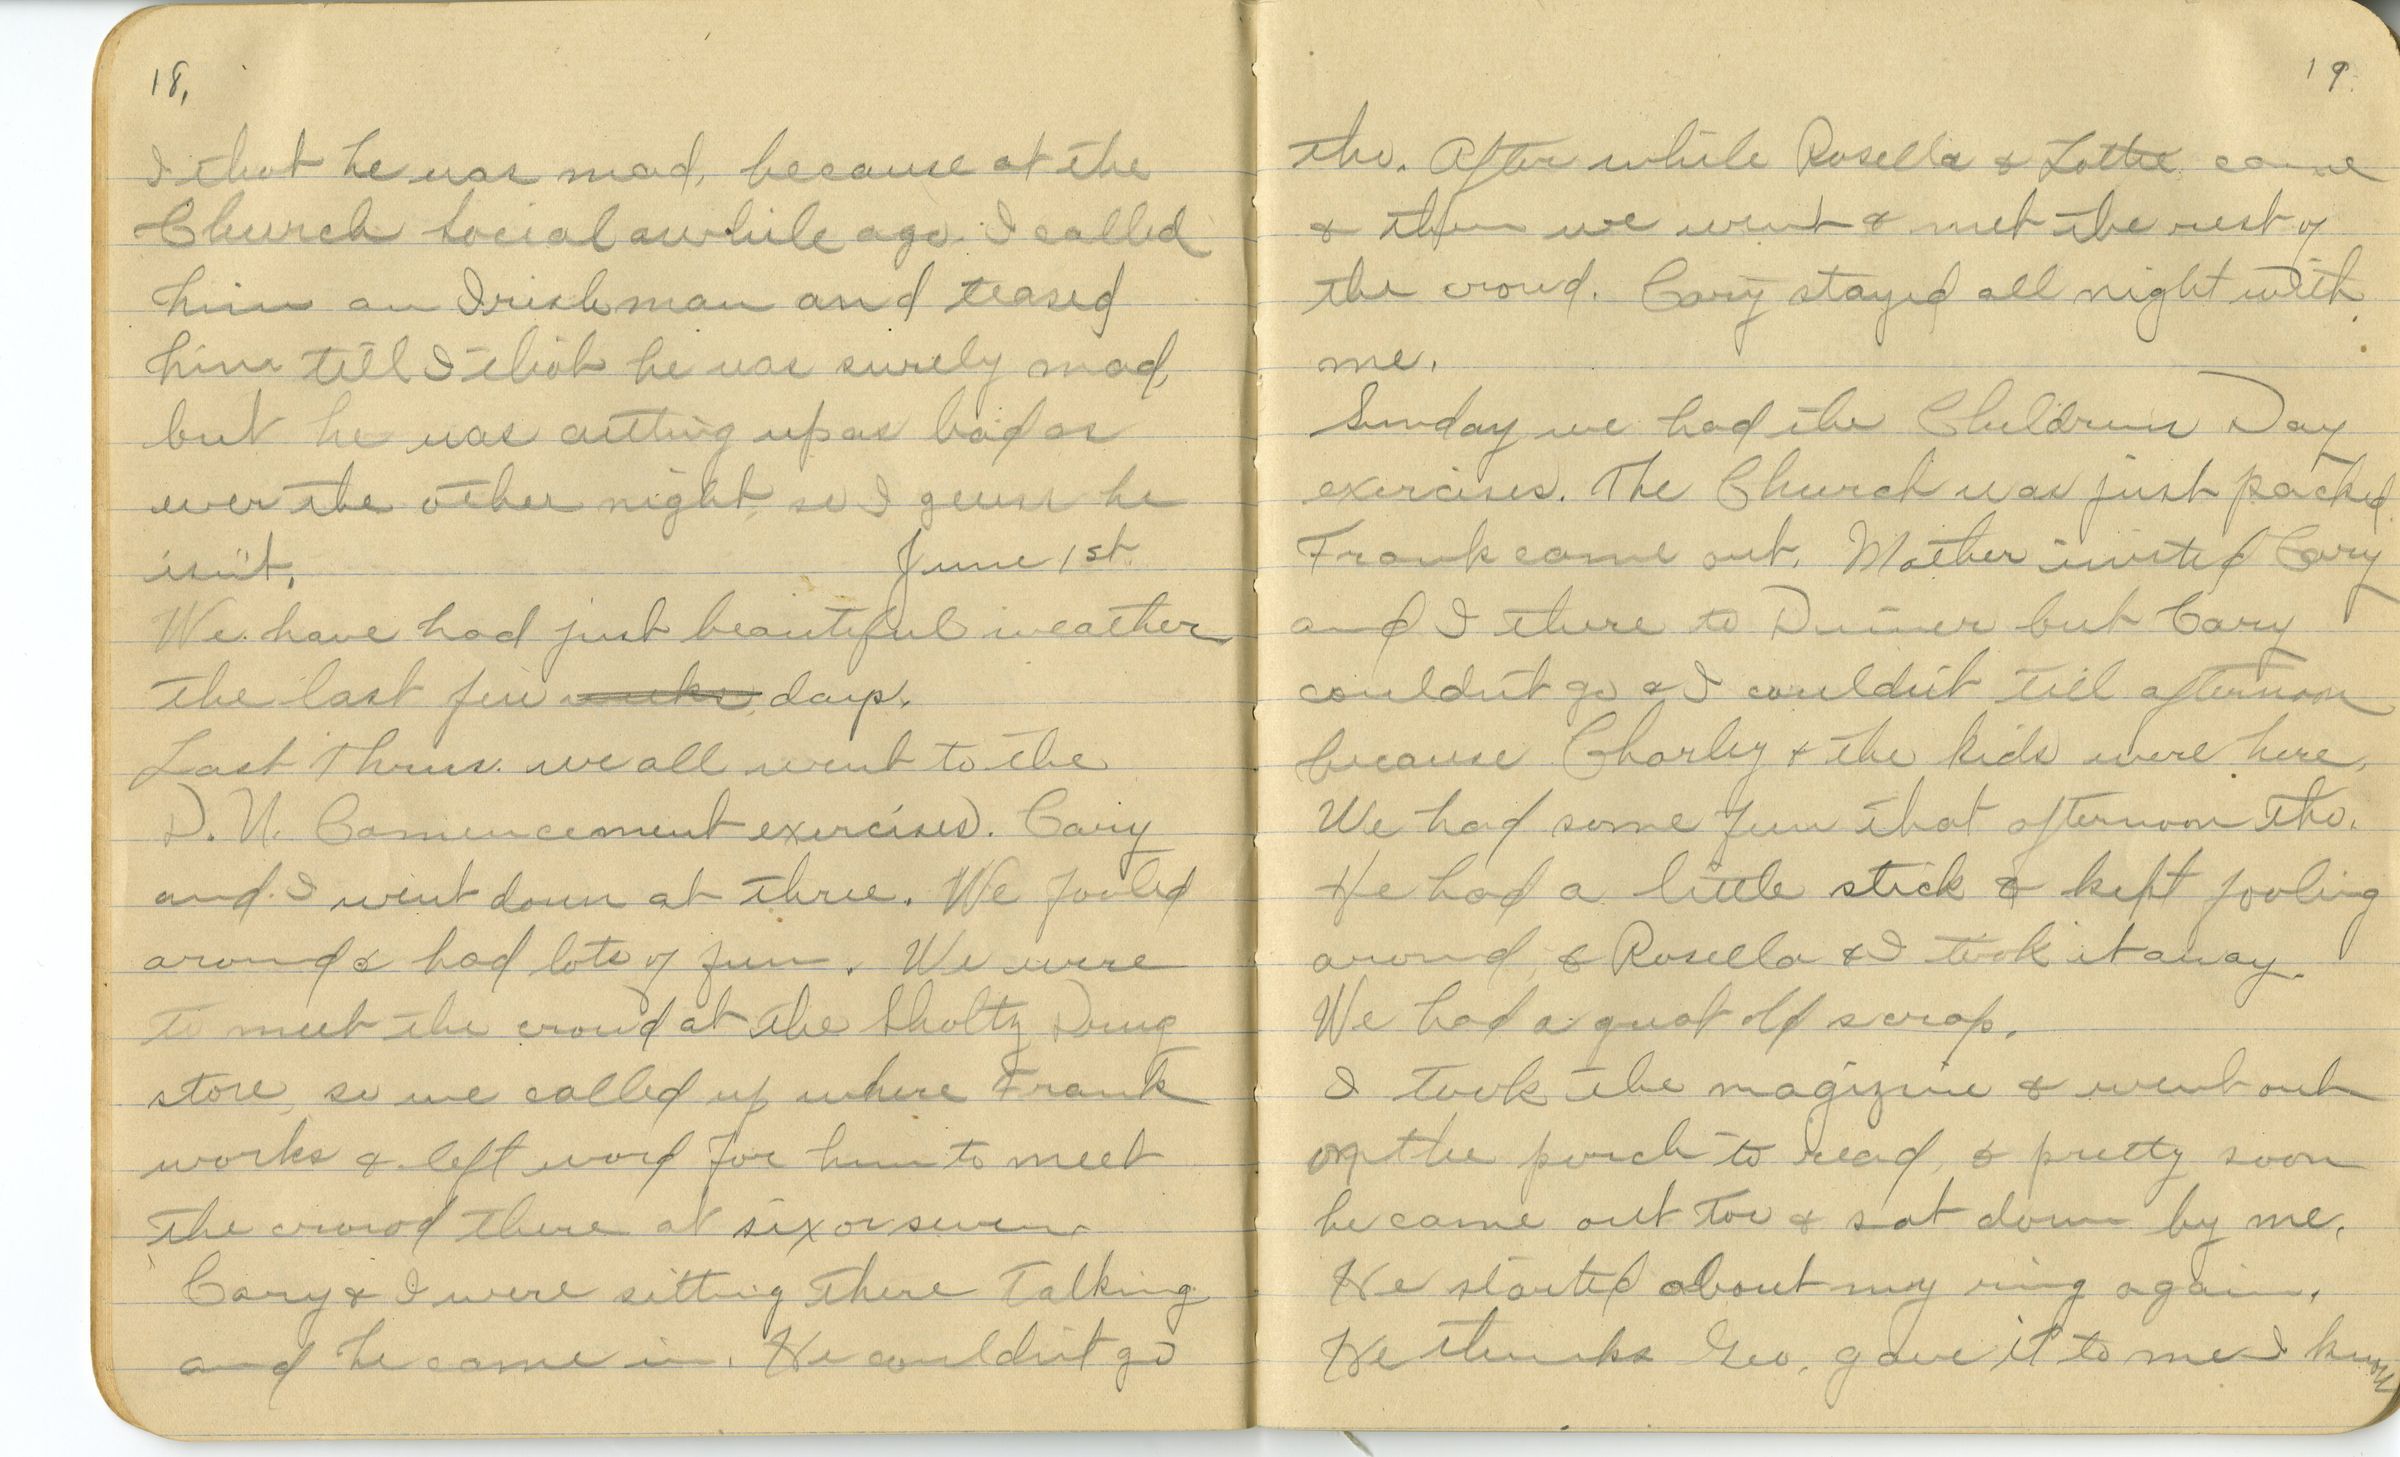 18,
I thot he was mad, because at the
Church Social awhile ago I called
him an Irishman and teased
him till I thot he was surely mad,
but he was cutting up as bad as
ever the other night, so I guess he
isn't. June 1st.
We have had just beautiful weather
the last few weeks days.
Last Thurs. we all went to the
D. U. Comencement exercises. Cary
and I went down at three. We fooled
around & had lots of fun. We were
to meet the crowd at the Sholtz Drug
store, so we called up where Frank
works & left word for him to meet
the crowd there at six or seven.
Cary & I were sitting there talking
and he came in. He couldn't go
19.
tho. After while Rosella & Lottie came
& then we went & met the rest of
the crowd. Cary stayed all night with
me.
Sunday we had the Childrens Day
exercises. The Church was just packed
Frank came out. Mother invited Cary
and I there to Dinner but Cary
couldn't go & I couldn't till afternoon
because Charley & the kids were here.
We had some fun that afternoon tho.
He had a little stick & kept fooling
around, & Rosella & I took it away.
We had a great old scrap.
I took the magizine & went out
on the porch to read, & pretty soon
he came out too & sat down by me.
He started about my ring again.
He thinks Geo. gave it to me I know